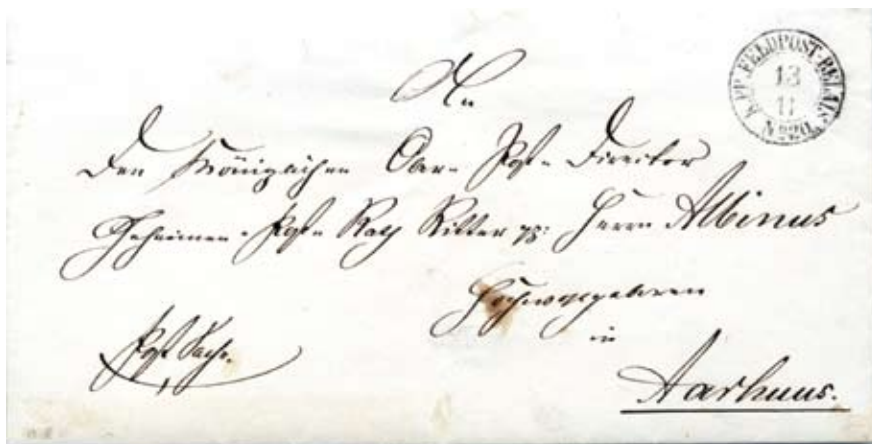 K. PR. FELDPOST-RELAIS
13
11
No 20.
An
den Königlichen Ober-Post-Director
Geheimen-Post-Rath Ritter pp: Herrn Albinus
Hochwohlgeboren
in
Post Sache.
Aarhuus.